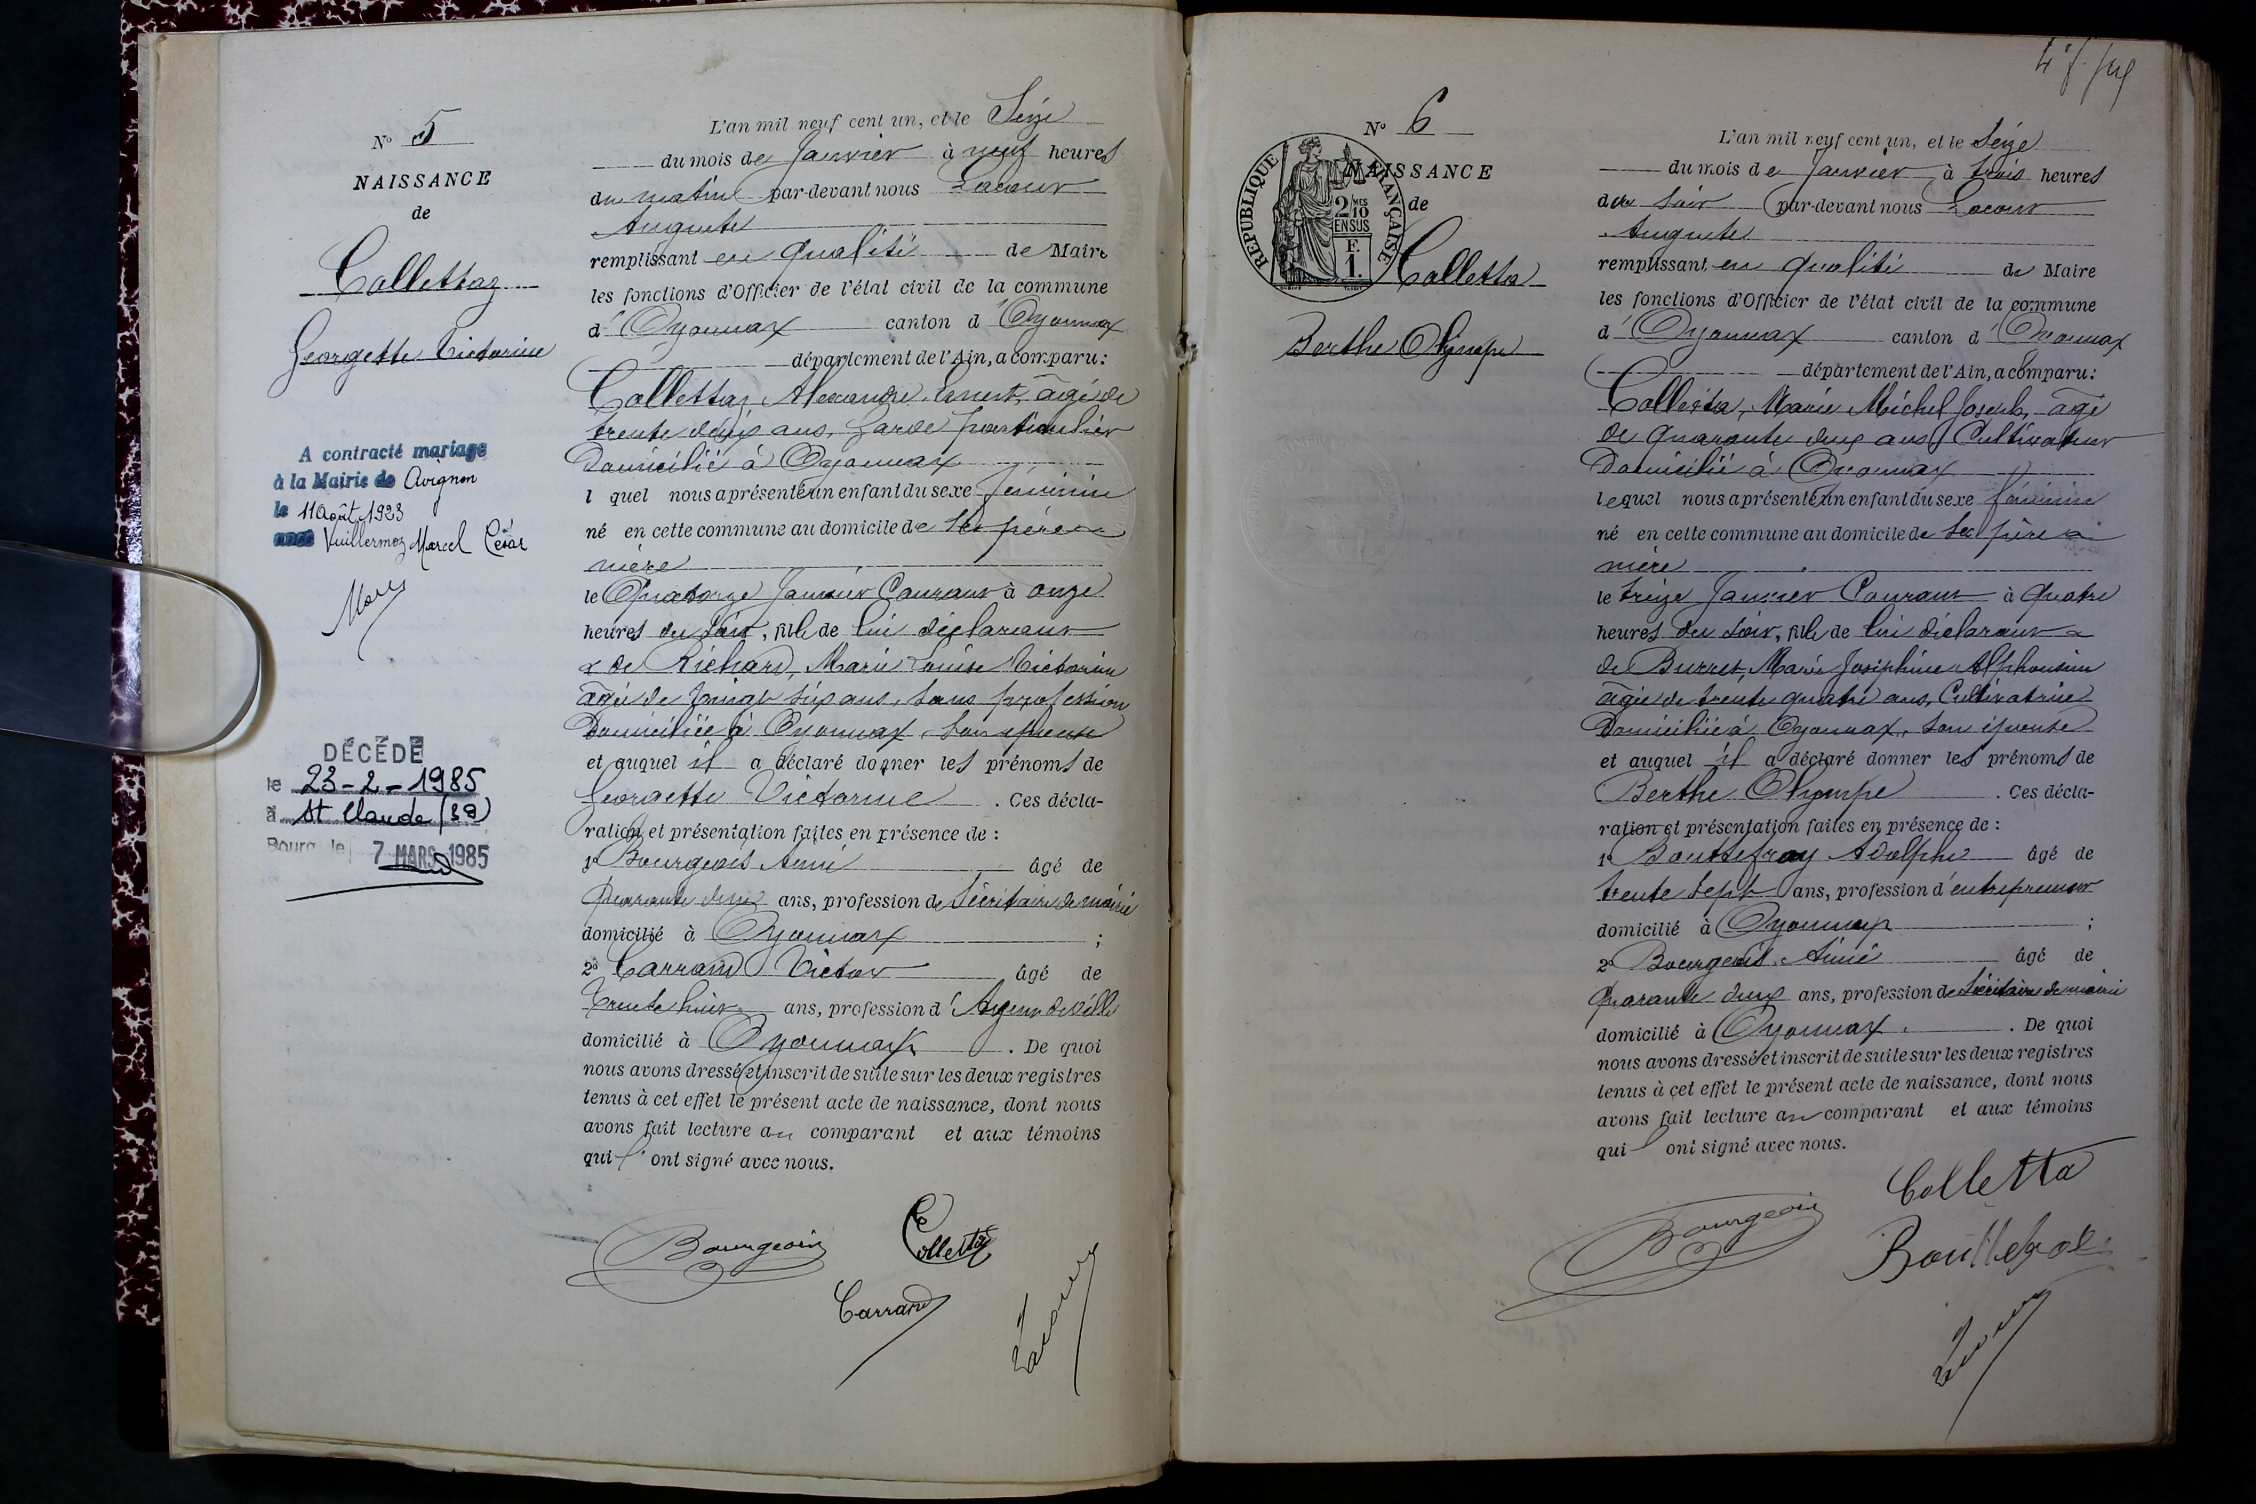 N° 5
NAISSANCE
de
Collettaz
Georgette Victorine
A contracté mariage
à la Mairie de Avignon
le 11 Août 1923
avec Vuillermoz Marcel César
DÉCÉDÉ
le 23-2-1985
à St Claude (39)
Bourg le 7 MARS 1985
L'an mil neuf cent un, et le Seize
du mois de Janvier à neuf heures
du matin par-devant nous Lacour
Auguste
remplissant en qualité de Maire
les fonctions d'Officier de l'état civil de la commune
d'Oyonnax canton d'Oyonnax
département de l'Ain, a comparu :
Collettaz, Alexandre Ernest, âgé de
trente deux ans, Garde particulier
Domicilié à Oyonnax
l quel nous a présenté un enfant du sexe féminin
né en cette commune au domicile de ses père &
mère
le Quatorze Janvier Courant à onze
heures du soir, fille de lui déclarant
& de Richard, Marie Louise Victorine
âgée de vingt six ans, sans profession
Domiciliée à Oyonnax, son épouse
et auquel il a déclaré donner les prénoms de
Georgette Victorine . Ces décla-
ration et présentation faites en présence de :
1° Bourgeois Aimé âgé de
Quarante deux ans, profession de Sécrétaire de mairie
domicilié à Oyonnax ;
2° Carrand Victor âgé de
Trente huit ans, profession d'Agent de ville
domicilié à Oyonnax . De quoi
nous avons dressé et inscrit de suite sur les deux registres
tenus à cet effet le présent acte de naissance, dont nous
avons fait lecture au comparant et aux témoins
qui ont signé avec nous.
Bourgeois
Collettaz
Carrand
Lacour
N° 6
RÉPUBLIQUE FRANÇAISE
2 MES
10
EN SUS
F.
1.
NAISSANCE
de
Colletta
Berthe Olympe
L'an mil neuf cent un, et le Seize
du mois de Janvier à trois heures
du soir par-devant nous Lacour
Auguste
remplissant en qualité de Maire
les fonctions d'Officier de l'état civil de la commune
d'Oyonnax canton d'Oyonnax
département de l'Ain, a comparu :
Colletta, Marie Michel Joseph, âgé
de quarante deux ans, Cultivateur
Domicilié à Oyonnax
lequel nous a présenté un enfant du sexe féminin
né en cette commune au domicile de ses père &
mère
le treize Janvier Courant à Quatre
heures du soir, fille de lui déclarant &
de Burret, Marie Joséphine Alphonsine
âgée de trente quatre ans, Cultivatrice
Domiciliée à Oyonnax, son épouse
et auquel il a déclaré donner les prénoms de
Berthe Olympe . Ces décla-
ration et présentation faites en présence de :
1° Bouttefroy Adolphe âgé de
trente sept ans, profession d'entrepreneur
domicilié à Oyonnax ;
2° Bourgeois Aimé âgé de
Quarante deux ans, profession de Sécrétaire de mairie
domicilié à Oyonnax . De quoi
nous avons dressé et inscrit de suite sur les deux registres
tenus à cet effet le présent acte de naissance, dont nous
avons fait lecture au comparant et aux témoins
qui ont signé avec nous.
Colletta
Bourgeois
Lacour